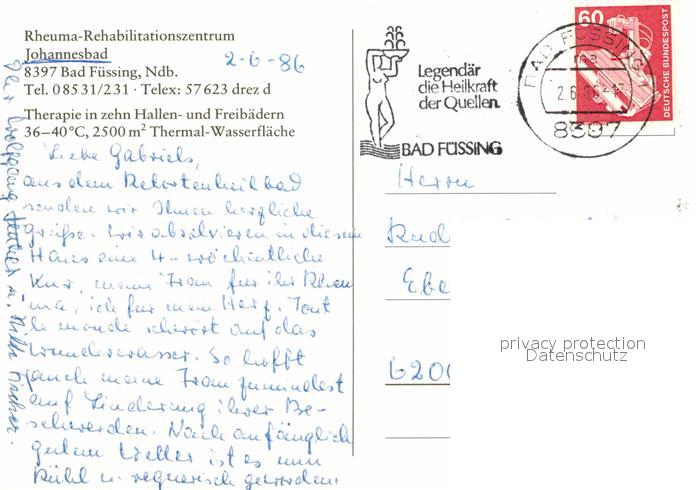 Rheuma-Rehabilitationszentrum
Johannesbad
2-6-86
8397 Bad Füssing, Ndb.
Tel. 08531/231 · Telex: 57623 drez d
Therapie in zehn Hallen- und Freibädern
36–40°C, 2500 m² Thermal-Wasserfläche
Liebe Gabriels,
aus dem Retortenheilbad
senden wir Ihnen herzliche
Grüße. Wir absolvieren in diesem
Haus eine 4-wöchentliche
Kur, meine Frau für ihr Rheu
ma, ich für mein Herz. Tout
le monde schwört auf das
Wunderwasser. So hofft
auch meine Frau zumindest
auf Linderung ihrer Be-
schwerden. Nach anfänglich
gutem Wetter ist es nun
kühl u. regnerisch geworden.
Ihr Wolfgang
Legendär
die Heilkraft
der Quellen.
BAD FÜSSING
BAD FÜSSING 1
2.6.86
8397
60
DEUTSCHE BUNDESPOST
Herrn
Rud
Ebe
620
privacy protection
Datenschutz